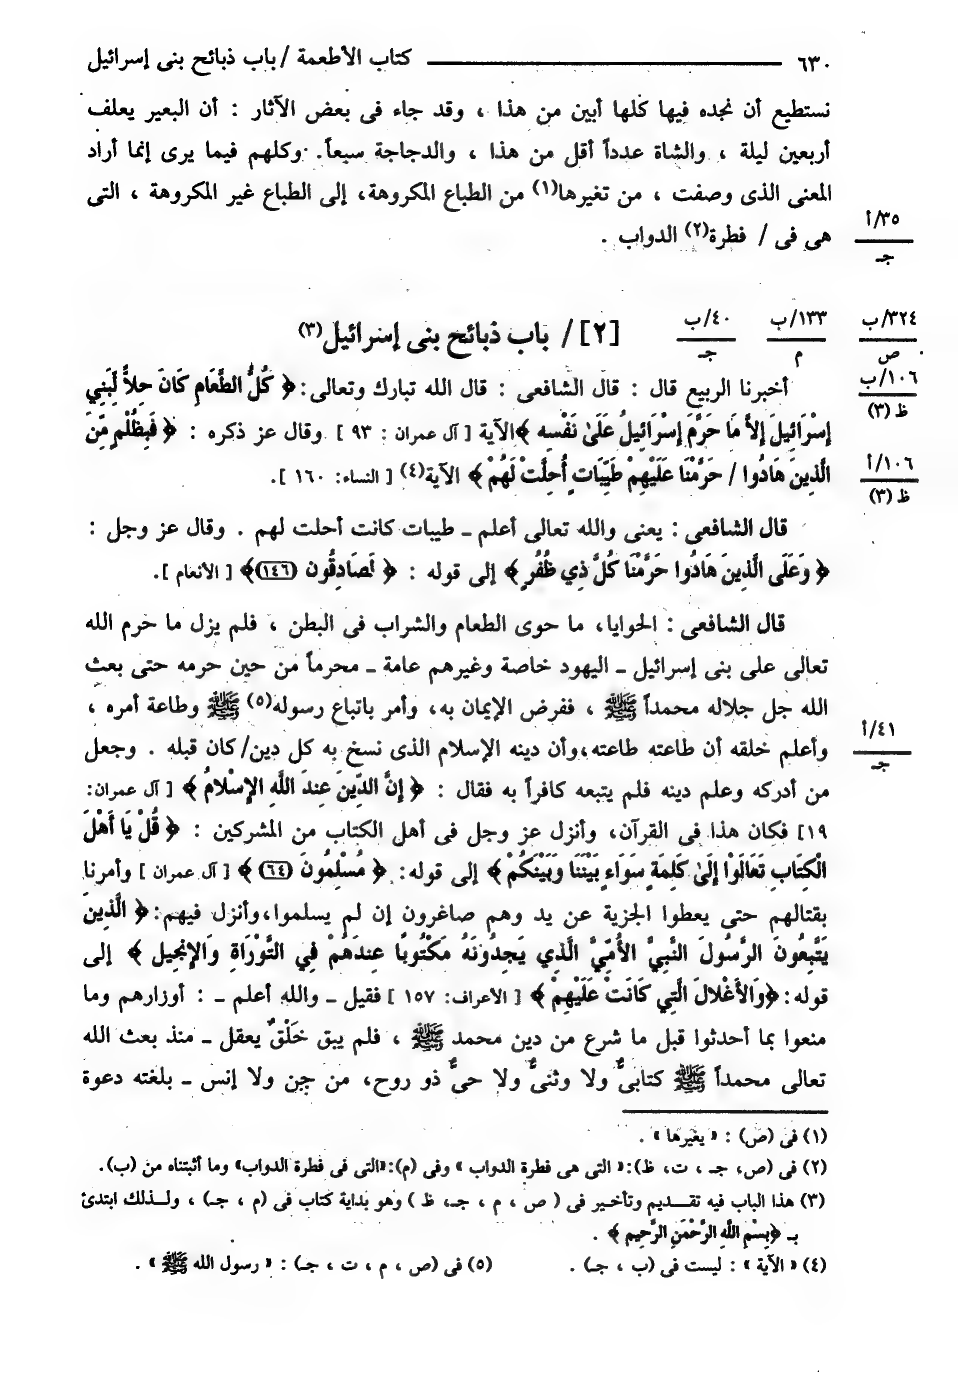 ٦٣٠ ــــــ كتاب الأطعمة / باب ذبائح بنى إسرائيل
نستطيع أن نجده فيها كلها أبين من هذا ، وقد جاء فى بعض الآثار : أن البعير يعلف
أربعين ليلة ، والشاة عدداً أقل من هذا ، والدجاجة سبعاً. وكلهم فيما يرى إنما أراد
المعنى الذى وصفت ، من تغيرها(١) من الطباع المكروهة، إلى الطباع غير المكروهة ، التى
هى فى / فطرة(٢) الدواب .
٣٥/أ
جـ
[٢] / باب ذبائح بنى إسرائيل(٣)
٤٠/ب
جـ
١٣٣/ب
م
٣٢٤/ب
ص
١٠٦/ب
ظ (٣)
أخبرنا الربيع قال : قال الشافعى : قال الله تبارك وتعالى: ﴿ كُلُّ الطَّعَامِ كَانَ حِلاًّ لِّبَنِي
إِسْرَائِيلَ إِلاَّ مَا حَرَّمَ إِسْرَائِيلُ عَلَىٰ نَفْسِهِ ﴾الآية [ آل عمران : ٩٣ ] وقال عز ذكره : ﴿ فَبِظُلْمٍ مِّنَ
الَّذِينَ هَادُوا / حَرَّمْنَا عَلَيْهِمْ طَيِّبَاتٍ أُحِلَّتْ لَهُمْ ﴾ الآية(٤) [ النساء: ١٦٠ ].
١٠٦/أ
ظ (٣)
قال الشافعى : يعنى والله تعالى أعلم ـ طيبات كانت أحلت لهم . وقال عز وجل :
﴿ وَعَلَى الَّذِينَ هَادُوا حَرَّمْنَا كُلَّ ذِي ظُفُرٍ ﴾ إلى قوله : ﴿ لَصَادِقُون (١٤٦)﴾ [ الأنعام ].
قال الشافعى : الحوايا، ما حوى الطعام والشراب فى البطن ، فلم يزل ما حرم الله
تعالى على بنى إسرائيل ـ اليهود خاصة وغيرهم عامة ـ محرماً من حين حرمه حتى بعث
الله جل جلاله محمداً ﷺ ، ففرض الإيمان به، وأمر باتباع رسوله(٥) ﷺ وطاعة أمره ،
وأعلم خلقه أن طاعته طاعته،وأن دينه الإسلام الذى نسخ به كل دين/ كان قبله . وجعل
٤١/أ
جـ
من أدركه وعلم دينه فلم يتبعه كافراً به فقال : ﴿ إِنَّ الدِّينَ عِندَ اللَّهِ الإِسْلامُ ﴾ [ آل عمران:
١٩] فكان هذا فى القرآن، وأنزل عز وجل فى أهل الكتاب من المشركين : ﴿ قُلْ يَا أَهْلَ
الْكِتَابِ تَعَالَوْا إِلَىٰ كَلِمَةٍ سَوَاءٍ بَيْنَنَا وَبَيْنَكُمْ ﴾ إلى قوله: ﴿ مُسْلِمُونَ (٦٤) ﴾ [ آل عمران ] وأمرنا
بقتالهم حتى يعطوا الجزية عن يد وهم صاغرون إن لم يسلموا،وأنزل فيهم:﴿ الَّذِينَ
يَتَّبِعُونَ الرَّسُولَ النَّبِيَّ الأُمِّيَّ الَّذِي يَجِدُونَهُ مَكْتُوبًا عِندَهُمْ فِي التَّوْرَاةِ وَالإِنجِيلِ ﴾ إلى
قوله: ﴿وَالأَغْلالَ الَّتِي كَانَتْ عَلَيْهِمْ ﴾ [ الأعراف: ١٥٧ ] فقيل ـ والله أعلم ـ : أوزارهم وما
منعوا بما أحدثوا قبل ما شرع من دين محمد ﷺ ، فلم يبق خَلْقٌ يعقل ـ منذ بعث الله
تعالى محمداً ﷺ كتابىٌّ ولا وثنىٌّ ولا حىٌّ ذو روح، من جن ولا إنس ـ بلغته دعوة
(١) فى (ص) : « يغيرها » .
(٢) فى (ص، جـ ، ت، ظ):« التى هى فطرة الدواب » وفى (م):«التى فى فطرة الدواب» وما أثبتناه من (ب).
(٣) هذا الباب فيه تقـديم وتأخـير فى ( ص ، م ، جـ، ظ ) وهو بداية كتاب فى (م ، جـ) ، ولـذلك ابتدئ
بـ ﴿بِسْمِ اللَّهِ الرَّحْمَنِ الرَّحِيمِ ﴾ .
(٤) « الآية » : ليست فى (ب ، جـ) . (٥) فى (ص ، م ، ت ، جـ) : « رسول الله ﷺ » .